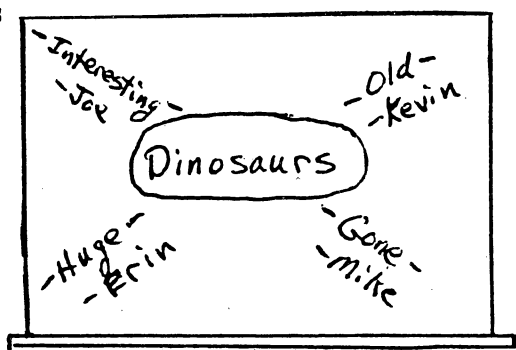 -Interesting-
-Joe
-Old-
-Kevin
Dinosaurs
-Huge-
-Erin
-Gone-
-Mike